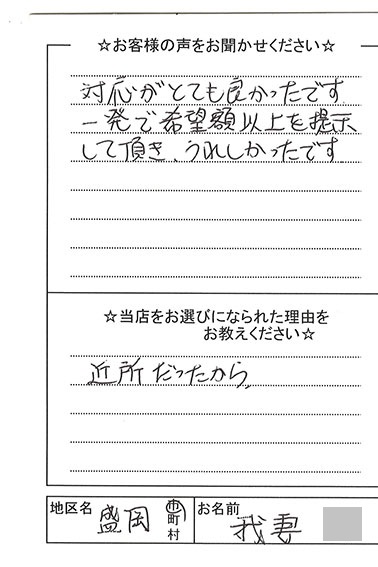 ☆お客様の声をお聞かせください☆
対応がとても良かったです
一発で希望額以上を提示
して頂き、うれしかったです。
☆当店をお選びになられた理由を
お教えください☆
近所だったから。
地区名 盛岡 市町村 お名前 我妻